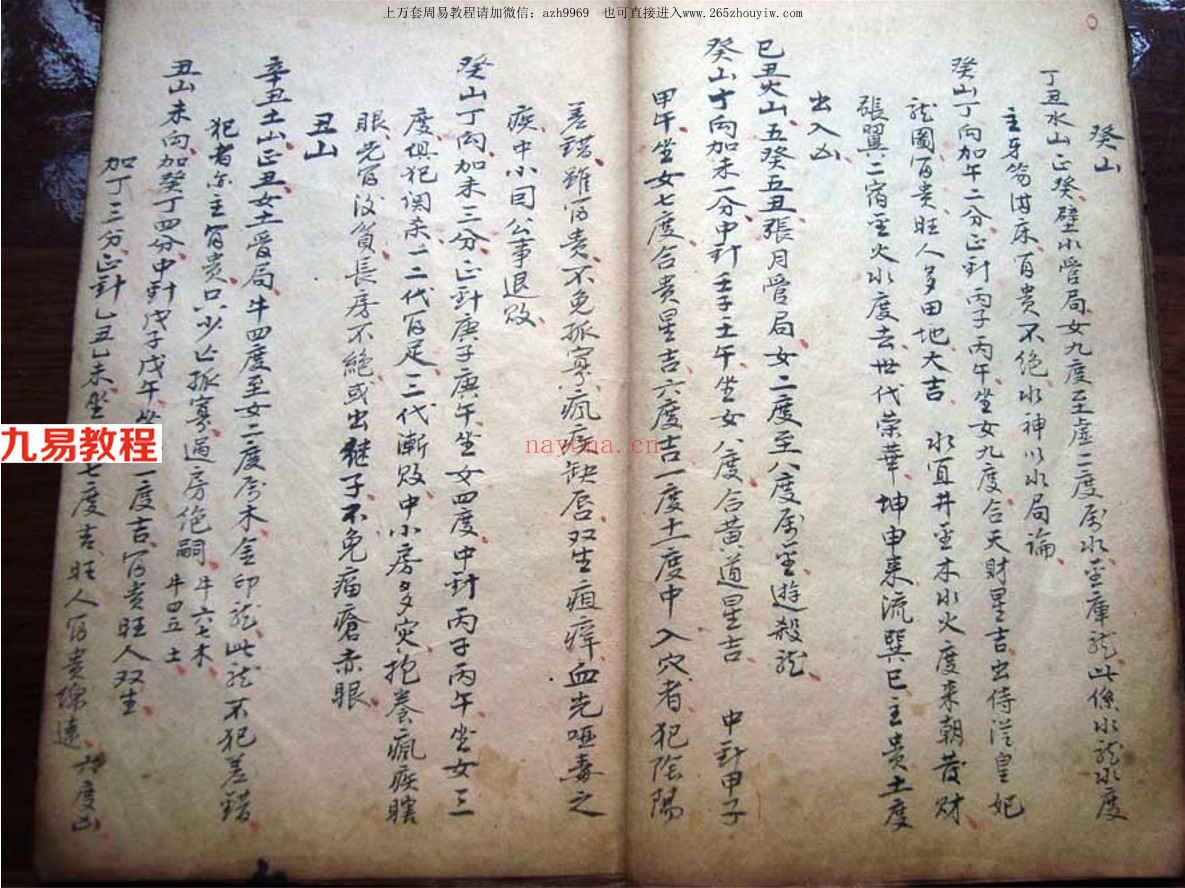 上万套周易教程请加微信：azh9969 也可直接进入www.265zhouyiw.com
癸山
丁丑水山正癸壁水管局女九度至虚二度属水至库龙此系水龙水度
主牙笏满床百贵不绝水神以水局論
癸山丁向加午二分正針丙子丙午坐女九度合天財星吉出侍從皇妃
龙圖百貴旺人多田地大吉 水宜井至木水火度来朝發財
張翼二宿至火水度去世代荣華坤申来流巽巳主貴土度
出入凶
巳丑火山五癸五丑張月管局女二度至八度属至遊殺龙
癸山丁向加未一分中針壬子壬午坐女八度合黄道星吉 中針甲子
甲午坐女七度合貴星吉六度吉一度十一度中入穴者犯陰陽
差錯雖富貴不免孤寡瘋疾缺唇双生疽瘴血光哑毒之
疾中小同公事退败
癸山丁向加未三分正針庚子庚午坐女四度中針丙子丙午坐女三
度俱犯関杀一二代富足三代漸败中小房多灾抱養瘋疾瞎
眼先富後貧長房不絶或出继子不免痛瘡赤眼
丑山
辛丑土山正丑女土管局牛四度至女二度属木金印龙此龙不犯差錯
犯者亦主富贵只少亡孤寡過房绝嗣 牛六七木 牛四五土
丑山未向加癸丁四分中針戊子戊午坐 一度吉富贵旺人双生
加丁三分正針乙丑乙未坐 七度吉旺人富贵绵遠 度凶
九易教程
nayona.cn